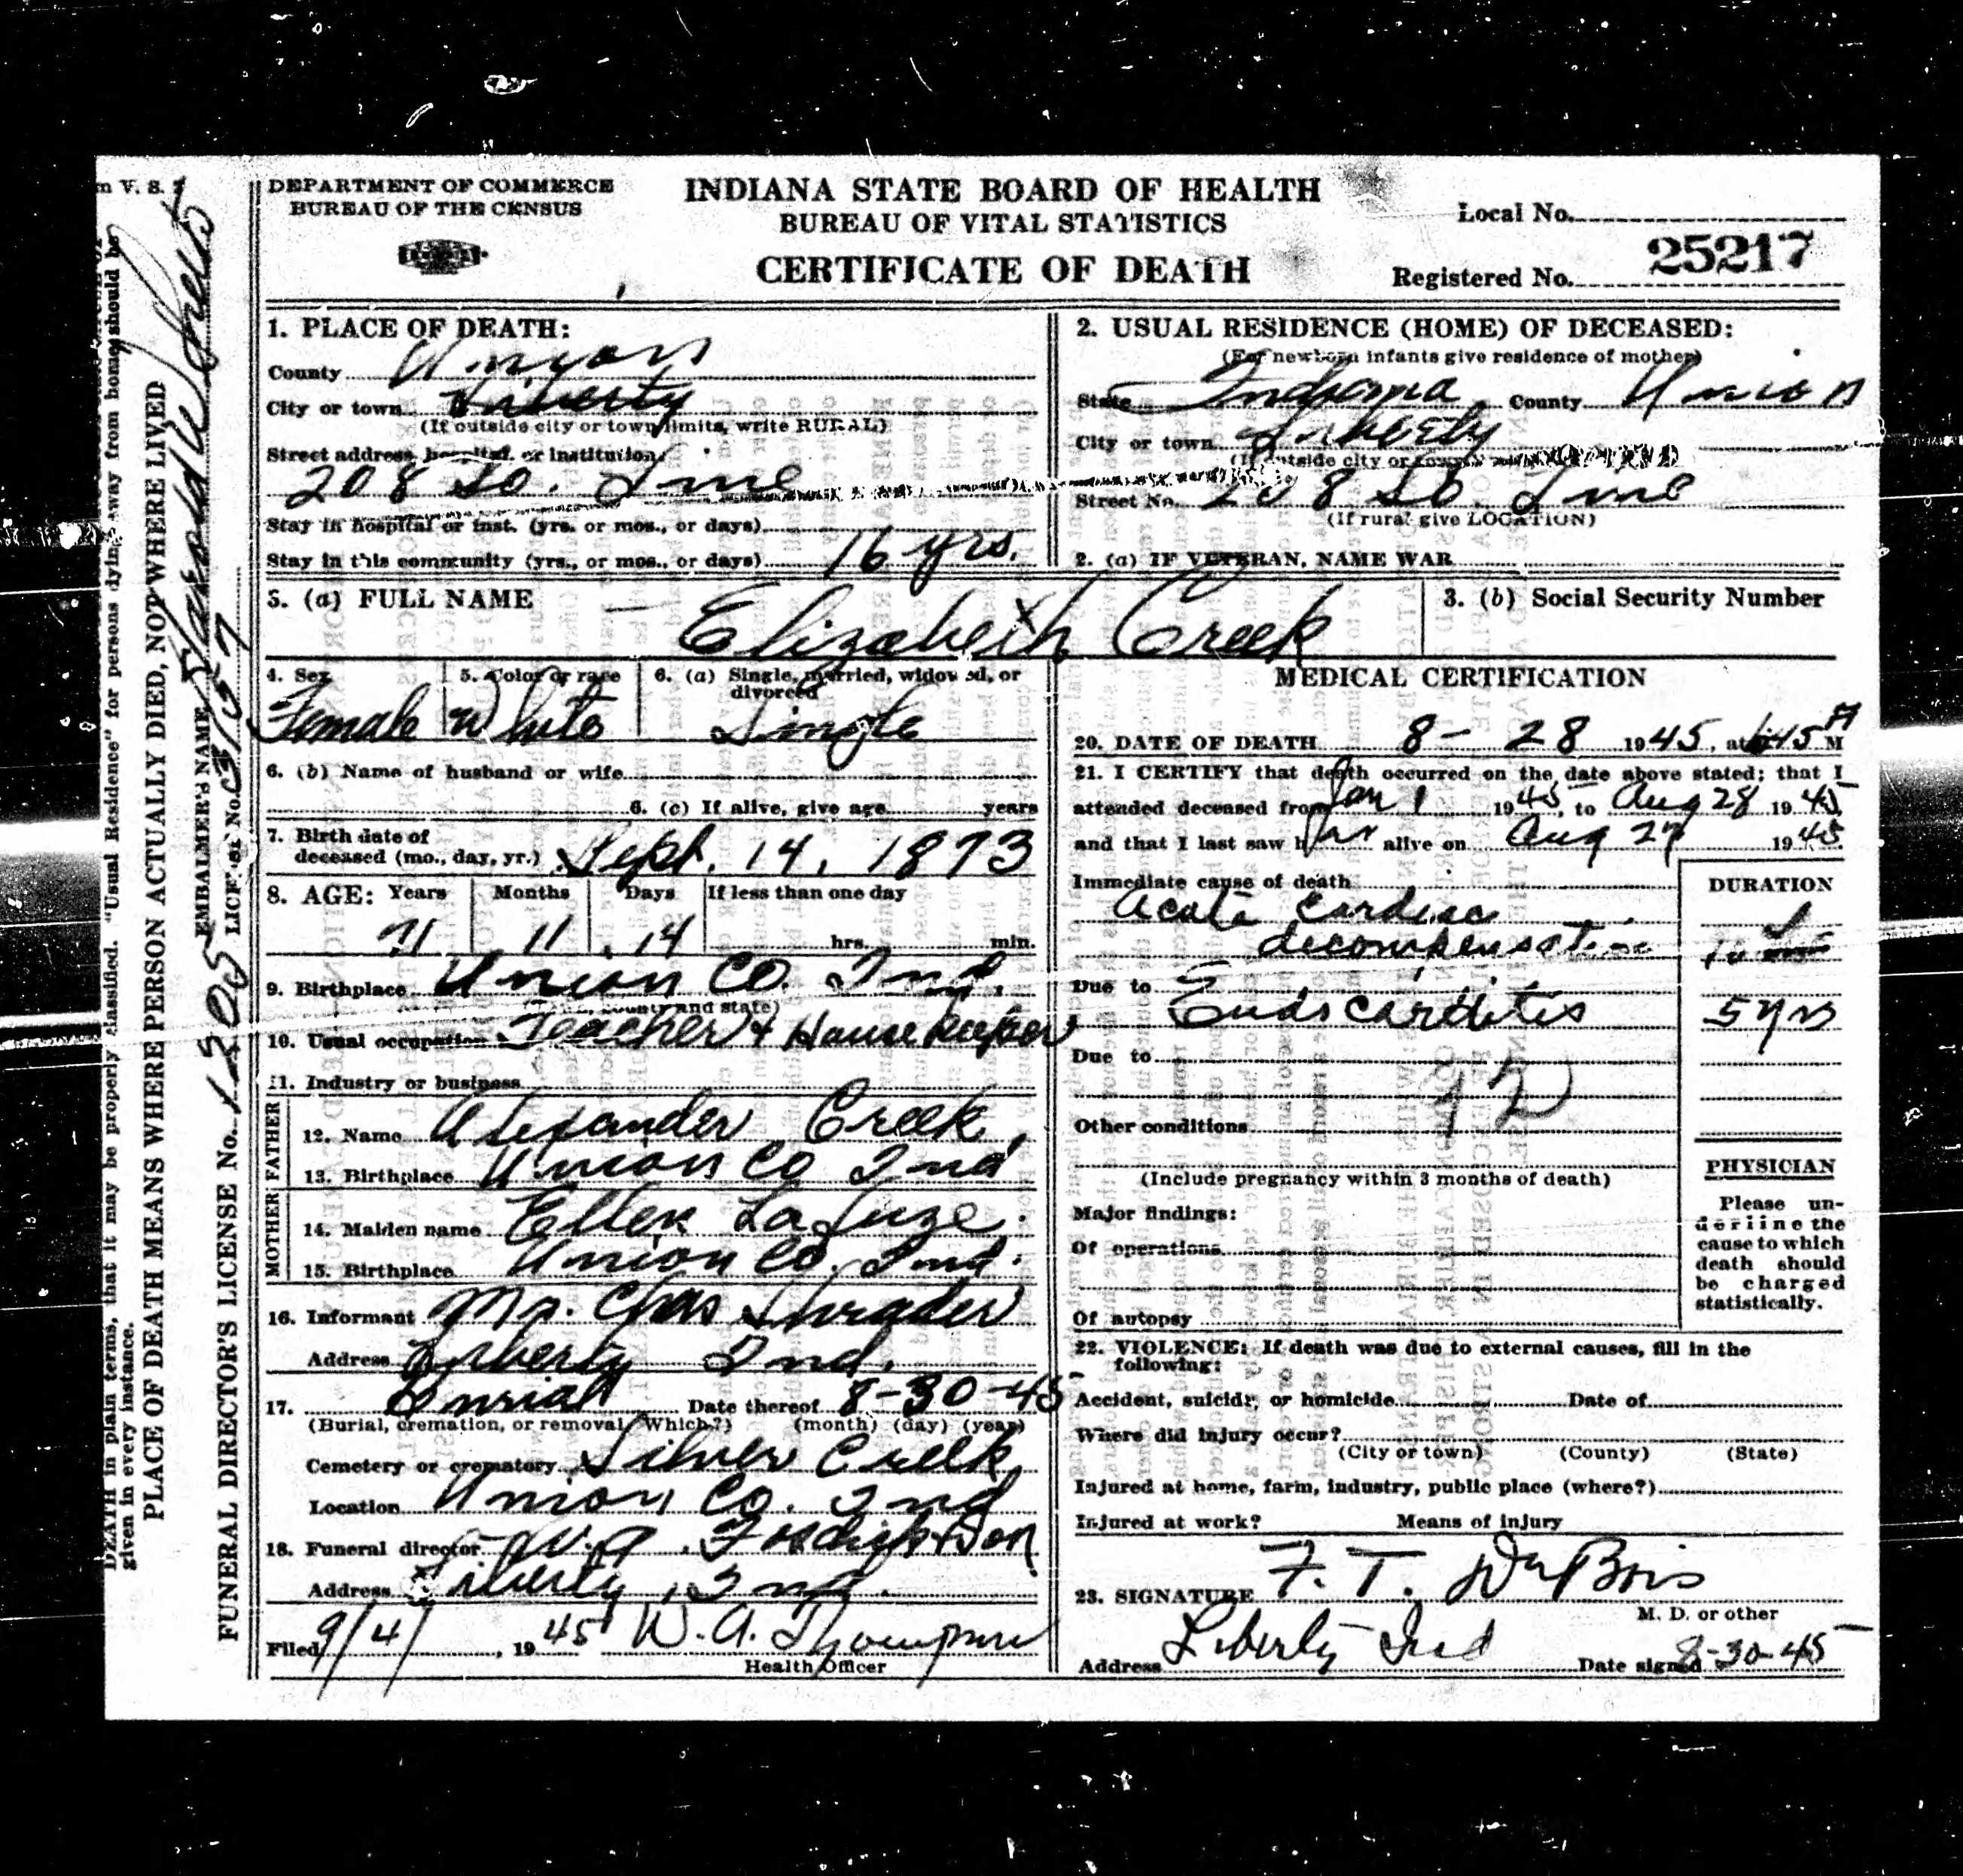 m V. S.
DEPARTMENT OF COMMERCE
BUREAU OF THE CENSUS
INDIANA STATE BOARD OF HEALTH
BUREAU OF VITAL STATISTICS
CERTIFICATE OF DEATH
Local No.
Registered No. 25217
1. PLACE OF DEATH:
County Union
City or town Liberty
(If outside city or town limits, write RURAL)
Street address, hospital, or institution:
208 So. Line
Stay in hospital or inst. (yrs. or mos., or days)
Stay in this community (yrs., or mos., or days) 16 yrs.
2. USUAL RESIDENCE (HOME) OF DECEASED:
(For newborn infants give residence of mother)
State Indiana County Union
City or town Liberty
(If outside city or town
Street No. 208 So Line
(If rural give LOCATION)
2. (a) IF VETERAN, NAME WAR
3. (a) FULL NAME Elizabeth Creek
3. (b) Social Security Number
4. Sex Female
5. Color or race White
6. (a) Single, married, widowed, or divorced Single
6. (b) Name of husband or wife
6. (c) If alive, give age years
7. Birth date of
deceased (mo., day, yr.) Sept. 14, 1873
8. AGE: Years Months Days If less than one day
71 11 14 hrs. min.
9. Birthplace Union Co. Ind.
county and state)
10. Usual occupation Teacher & House Keeper
11. Industry or business
FATHER
12. Name Alexander Creek
13. Birthplace Union Co Ind
MOTHER
14. Maiden name Ellen LaFuze
15. Birthplace Union Co. Ind.
16. Informant Chas Shrader
Address Liberty Ind.
17. Burial Date thereof 8-30-45
(Burial, cremation, or removal, Which?) (month) (day) (year)
Cemetery or crematory Silver Creek
Location Union Co. Ind
18. Funeral director W. A.
Address Liberty, Ind.
Filed 9/4/, 1945 W. A. Thompson
Health Officer
MEDICAL CERTIFICATION
20. DATE OF DEATH 8-28 1945, at M
21. I CERTIFY that death occurred on the date above stated; that I
attended deceased from Jan 1 1945, to Aug 28 1945,
and that I last saw her alive on Aug 27 1945
Immediate cause of death
DURATION
Acute cardiac
decompensation
Due to Endocarditis 5 yrs
Due to
92
Other conditions
(Include pregnancy within 3 months of death)
Major findings:
Of operations
Of autopsy
PHYSICIAN
Please un-
derline the
cause to which
death should
be charged
statistically.
22. VIOLENCE: If death was due to external causes, fill in the
following:
Accident, suicide, or homicide Date of
Where did injury occur?
(City or town) (County) (State)
Injured at home, farm, industry, public place (where?)
Injured at work? Means of injury
23. SIGNATURE F. T. DuBois
M. D. or other
Address Liberty Ind Date signed 8-30-45
DEATH in plain terms, that it may be properly classified. "Usual Residence" for persons dying away from home should be
given in every instance.
PLACE OF DEATH MEANS WHERE PERSON ACTUALLY DIED, NOT WHERE LIVED
EMBALMER'S NAME
LICENSE No.
FUNERAL DIRECTOR'S LICENSE No. 1205